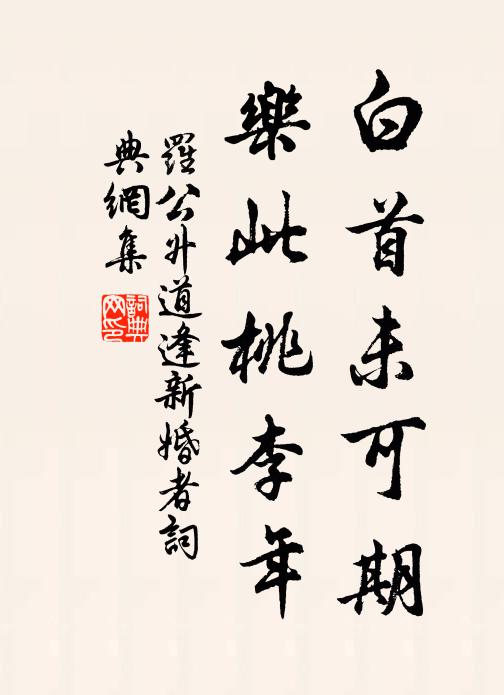 白首未可期
樂此桃李年
羅公升道逢新婚者詞
典網集
詞典網印